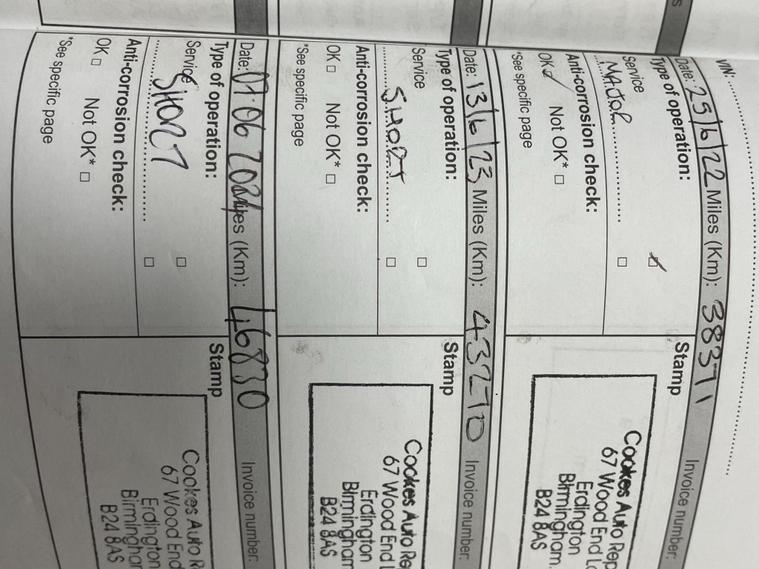 VIN:
Date: 25/6/22 Miles (Km): 38371 Invoice number:
Type of operation: Stamp
Service
MAJOR
Anti-corrosion check:
OK Not OK*
*See specific page
Cookes Auto Rep
67 Wood End L
Erdington
Birmingham.
B24 8AS
Date: 13/6/23 Miles (Km): 43270 Invoice number:
Type of operation: Stamp
Service
SHORT
Anti-corrosion check:
OK Not OK*
*See specific page
Cookes Auto Rep
67 Wood End L
Erdington
Birmingham
B24 8AS
Date: 07.06 2024 Miles (Km): 46830 Invoice number:
Type of operation: Stamp
Service
SHORT
Anti-corrosion check:
OK Not OK*
*See specific page
Cookes Auto R
67 Wood End
Erdington
Birmingham
B24 8AS